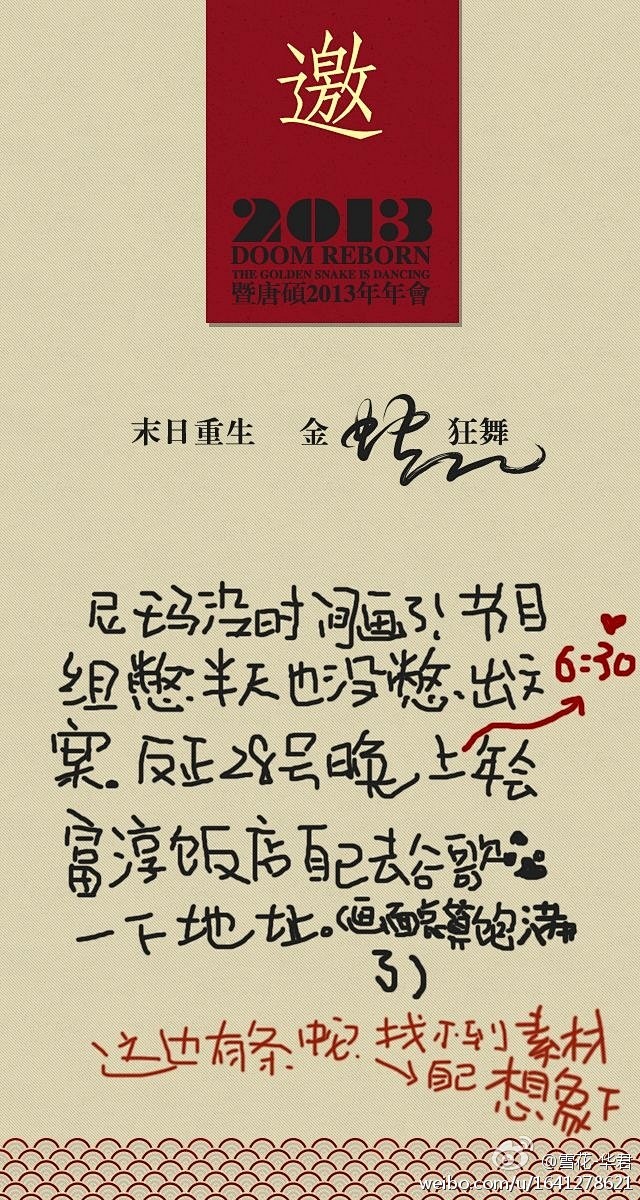 邀
2013
DOOM REBORN
THE GOLDEN SNAKE IS DANCING
暨唐碩2013年年會
末日重生 金蛇狂舞
尼玛没时间画了!节目
组憋半天也没憋出文
案。反正28号晚上年会
6:30
富淳饭店自己去谷歌
一下地址。(画面总算饱满
了)
这边有条蛇?找不到素材
自己想象下
@雪花-华君
weibo.com/u/1641278621